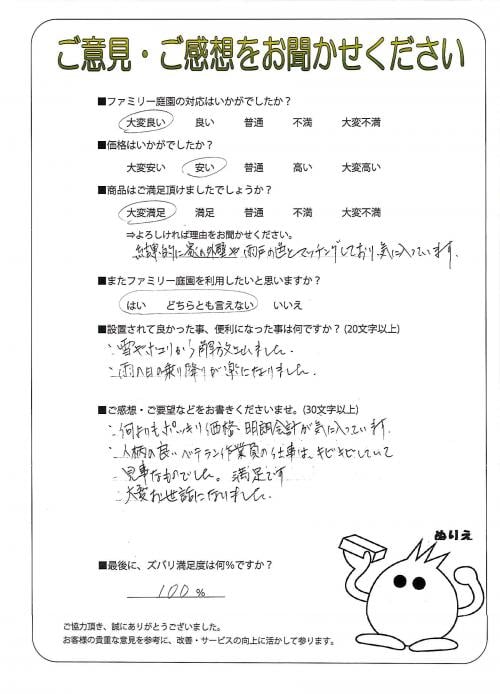 ご意見・ご感想をお聞かせください
■ファミリー庭園の対応はいかがでしたか？
大変良い 良い 普通 不満 大変不満
■価格はいかがでしたか？
大変安い 安い 普通 高い 大変高い
■商品はご満足頂けましたでしょうか？
大変満足 満足 普通 不満 大変不満
⇒よろしければ理由をお聞かせください。
結果的に家の外壁や雨戸の色とマッチングしており、気に入っています。
■またファミリー庭園を利用したいと思いますか？
はい どちらとも言えない いいえ
■設置されて良かった事、便利になった事は何ですか？(20文字以上)
雪やホコリから解放されました。
雨の日の乗り降りが楽になりました。
■ご感想・ご要望などをお書きくださいませ。(30文字以上)
何よりもポッキリ価格、明朗会計が気に入っています。
人柄の良いベテラン作業員の仕事は、キビキビしていて
見事なものでした。満足です
大変お世話になりました。
ぬりえ
■最後に、ズバリ満足度は何％ですか？
100 %
ご協力頂き、誠にありがとうございました。
お客様の貴重な意見を参考に、改善・サービスの向上に活かして参ります。